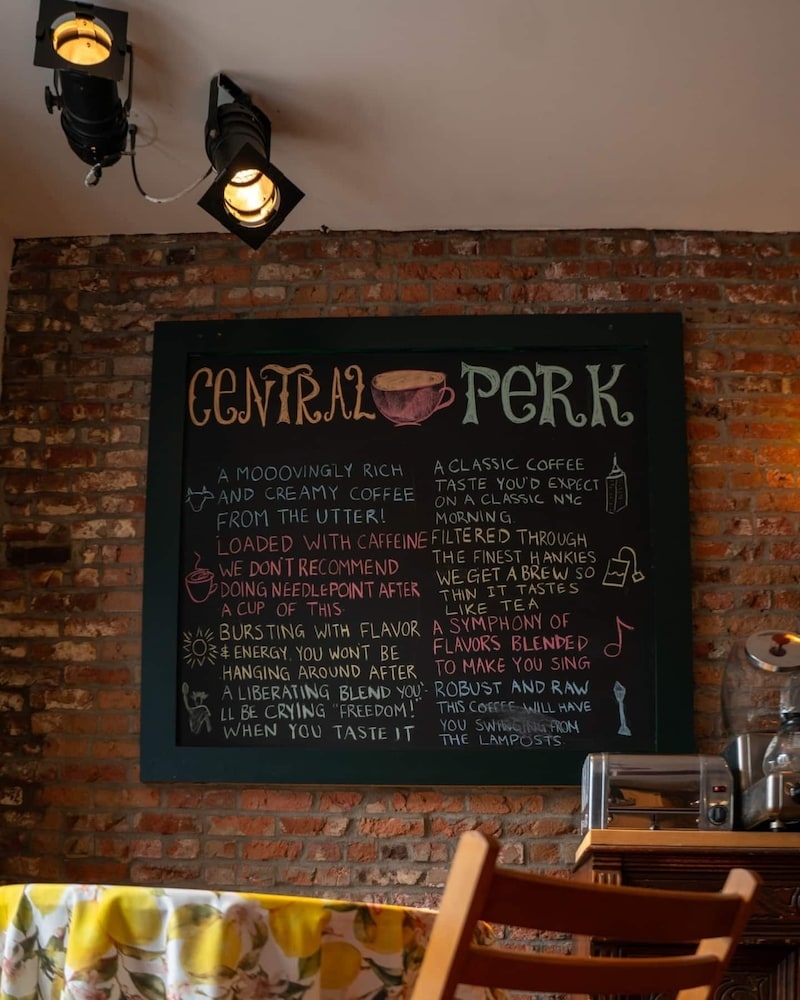 CENTRAL PERK
A MOOOVINGLY RICH
AND CREAMY COFFEE
FROM THE UTTER!
LOADED WITH CAFFEINE
WE DON'T RECOMMEND
DOING NEEDLEPOINT AFTER
A CUP OF THIS
BURSTING WITH FLAVOR
& ENERGY, YOU WON'T BE
HANGING AROUND AFTER
A LIBERATING BLEND YOU'-
LL BE CRYING "FREEDOM!"
WHEN YOU TASTE IT
A CLASSIC COFFEE
TASTE YOU'D EXPECT
ON A CLASSIC NYC
MORNING.
FILTERED THROUGH
THE FINEST HANKIES
WE GET A BREW SO
THIN IT TASTES
LIKE TEA
A SYMPHONY OF
FLAVORS BLENDED
TO MAKE YOU SING
ROBUST AND RAW
THIS COFFEE WILL HAVE
YOU SWINGING FROM
THE LAMPOSTS.